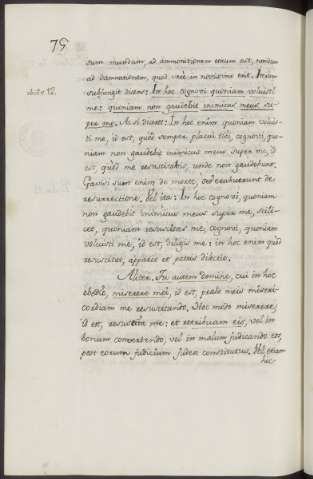 79
sum mundum, ad ammonitionem eorum est, tandem
ad damnationem, quod erit in novissimo erit. Item
dicte 12. subjungit dicens: In hoc cognovi quoniam voluisti
me: quoniam non gaudebit inimicus meus su-
per me. Ac si diceret: In hoc enim quoniam volui-
sti me, id est, quod semper placui tibi, cognovi, quo-
niam non gaudebit inimicus meus super me, id
est, quod me resuscitabis, unde non gaudebunt.
Gavisi sunt enim de morte, sed erubuerunt de
resurrectione. Vel ita: In hoc cognovi, quoniam
non gaudebit inimicus meus super me, scili-
cet, quoniam resuscitas me, cognovi, quoniam
voluisti me, id est, diligis me: in hoc enim quod
resuscites, apparet et patris dilectio.
Aliter. Tu autem domine, cui in hoc
miserere mei, id est, praebe meis miseri-
cordiam me resurgendo. Hoc modo miserere,
id est, resuscita me: et retribuam eis, vel in
bonum convertendo, vel in malum judicando eos,
post eorum judicium judex constitutus. Vel etiam
hic